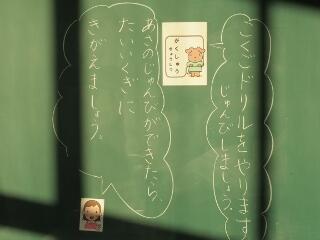 こくごドリルをやります
じゅんびしましょう。
がくしゅう
あさのじゅんびができたら、
たいいくぎに
きがえましょう。